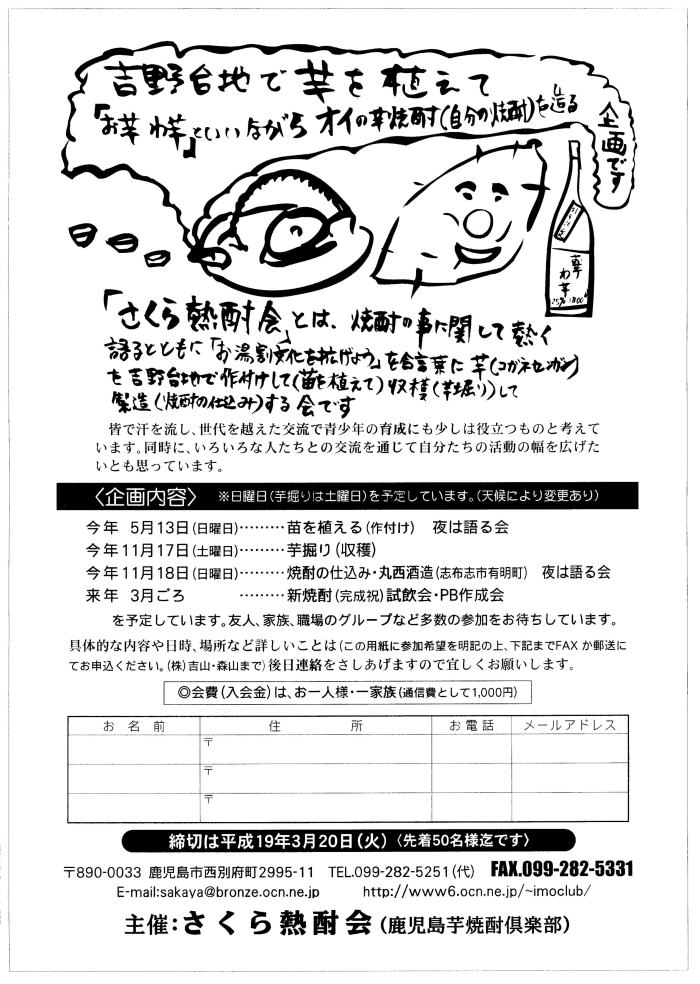 吉野台地で芋を植えて
「お芋わ芋」といいながらオイの芋焼酎(自分の焼酎)を造る
企画です
芋わ芋
25% 1800
「さくら熱酎会」とは、焼酎の事に関して熱く
語るとともに「お湯割文化を拡げよう」を合言葉に芋(コガネセンガン)
を吉野台地で作付けして(苗を植えて)収穫(芋堀り)して
製造(焼酎の仕込み)する会です
皆で汗を流し、世代を越えた交流で青少年の育成にも少しは役立つものと考えて
います。同時に、いろいろな人たちとの交流を通じて自分たちの活動の幅を広げた
いとも思っています。
〈企画内容〉 ※日曜日(芋掘りは土曜日)を予定しています。(天候により変更あり)
今年 5月13日(日曜日)………苗を植える(作付け) 夜は語る会
今年11月17日(土曜日)………芋掘り(収穫)
今年11月18日(日曜日)………焼酎の仕込み・丸西酒造(志布志市有明町) 夜は語る会
来年 3月ごろ ………新焼酎(完成祝)試飲会・PB作成会
を予定しています。友人、家族、職場のグループなど多数の参加をお待ちしています。
具体的な内容や日時、場所など詳しいことは(この用紙に参加希望を明記の上、下記までFAXか郵送に
てお申込ください。(株)吉山・森山まで)後日連絡をさしあげますので宜しくお願いします。
◎会費(入会金)は、お一人様・一家族(通信費として1,000円)
お名前 住所 お電話 メールアドレス
〒
〒
〒
締切は平成19年3月20日(火)〈先着50名様迄です〉
〒890-0033 鹿児島市西別府町2995-11 TEL.099-282-5251(代) FAX.099-282-5331
E-mail:sakaya@bronze.ocn.ne.jp http://www6.ocn.ne.jp/~imoclub/
主催:さくら熱酎会(鹿児島芋焼酎倶楽部)